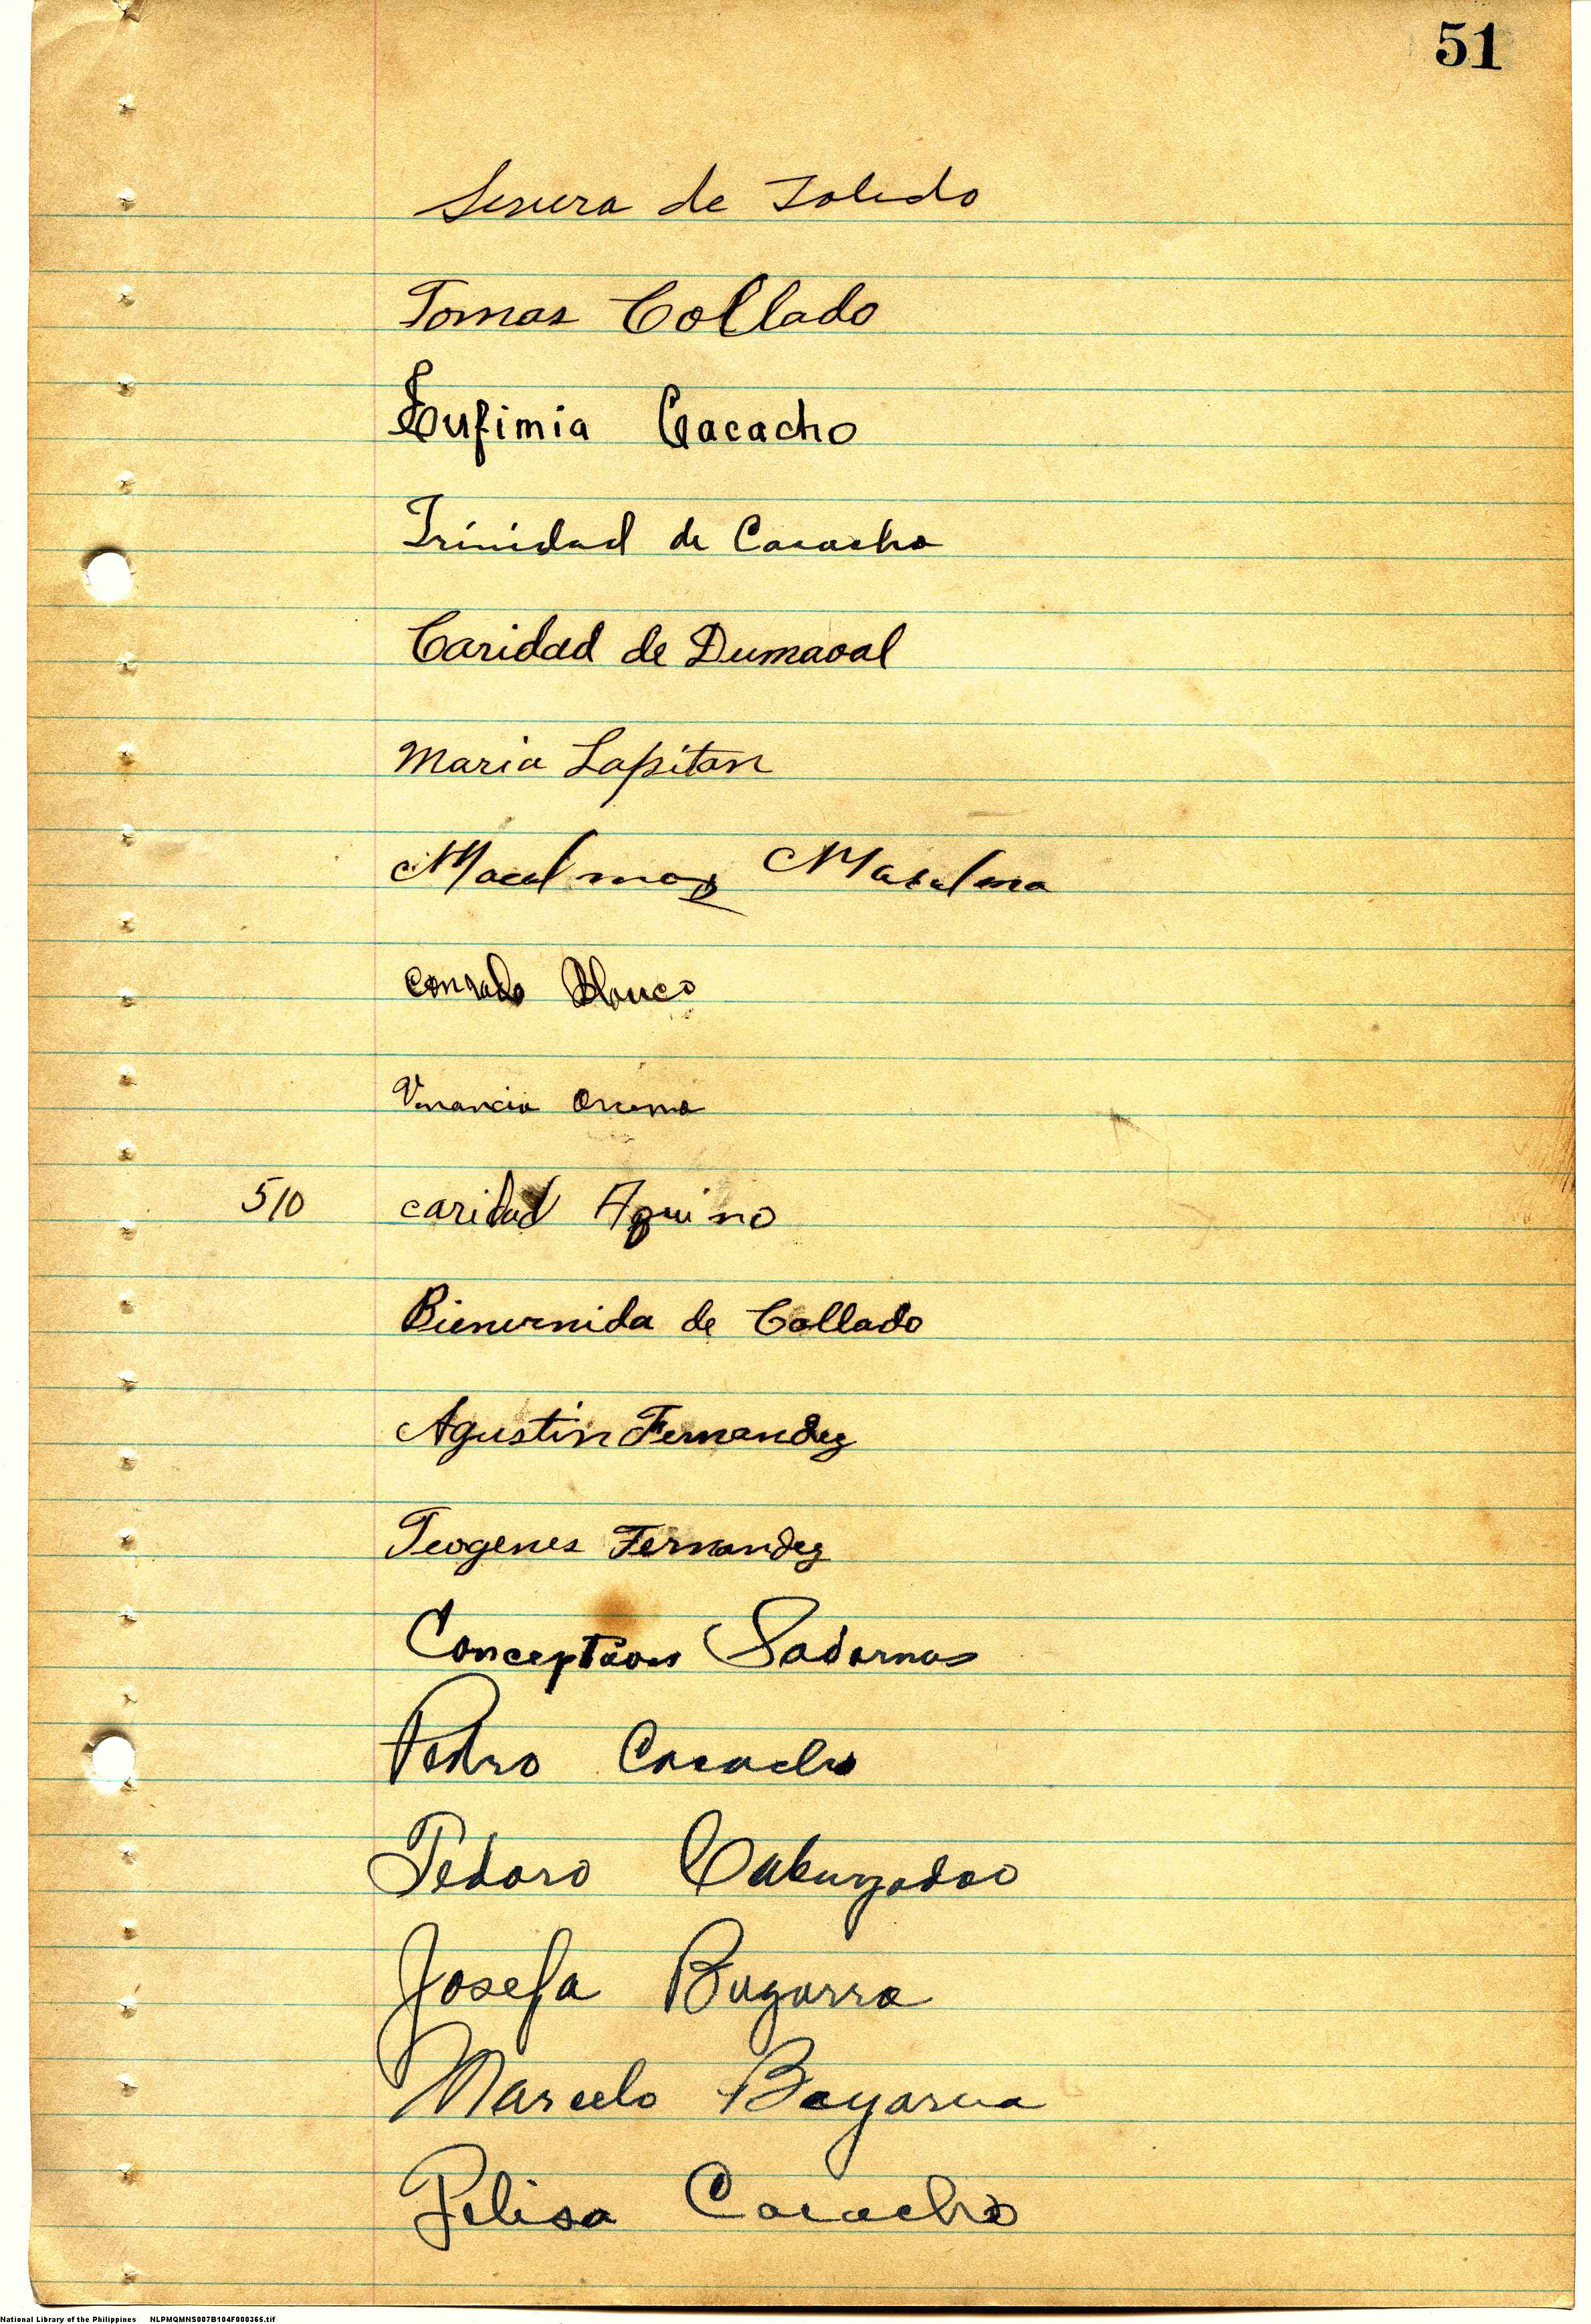 51
Severa de Toledo
Tomas Collado
Eufimia Cacacho
Trinidad de Cacacho
Caridad de Dumaoal
Maria Lapitan
Conrado Blanco
Venancio
510 caridad Aquino
Bienvenida de Collado
Agustin Fernandez
Teogenes Fernandez
Conception Sadornas
Pedro Cacacho
Pedoro
Josefa Bugarra
Marcelo
Felisa Cacacho
National Library of the Philippines NLPMQMNS007B104F000365.tif